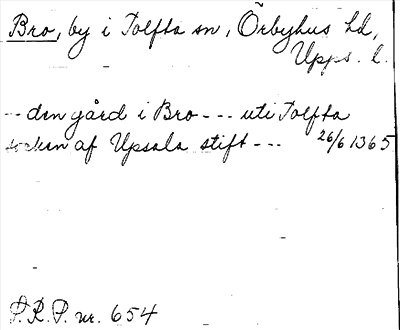 Bro, by i Tolfta sn, Örbyhus hd,
Upps. l.
-- den gård i Bro --- uti Tolfta
socken af Upsala stift --- 26/6 1365
S.R.P. nr. 654